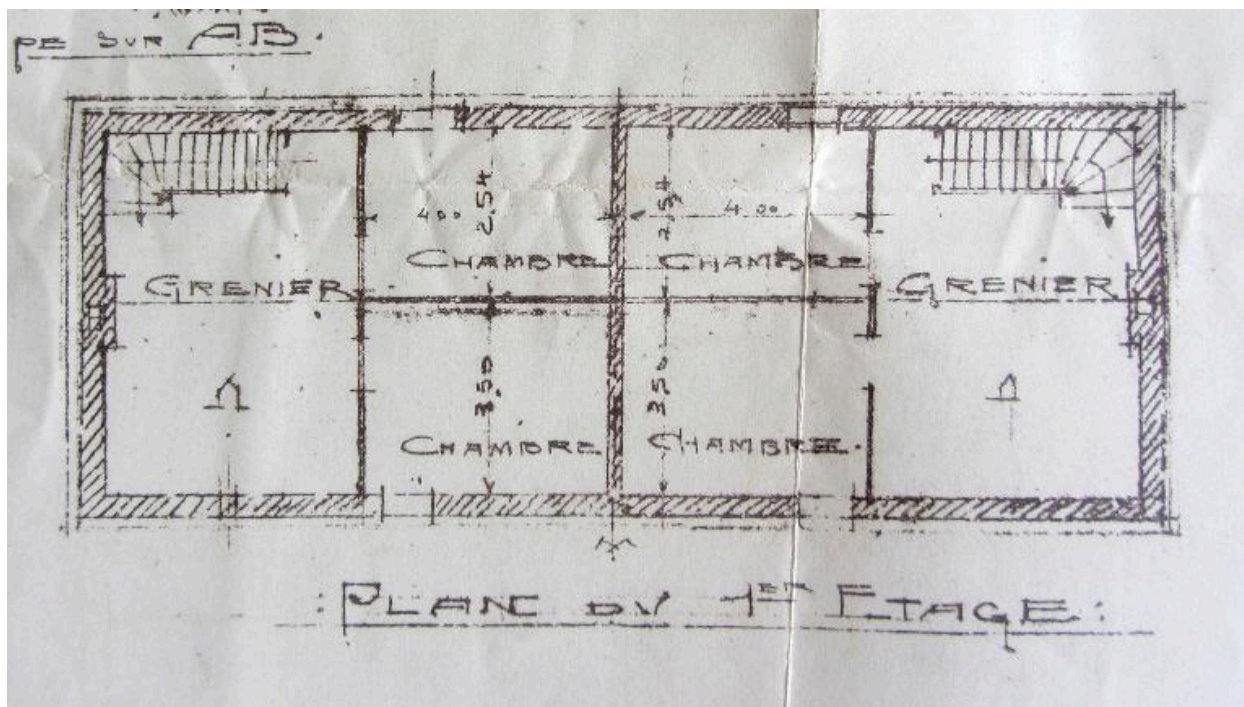 PE SUR AB.
4.00 2.54 2.54 4.00
CHAMBRE CHAMBRE
GRENIER GRENIER
3.50 3.50
CHAMBRE CHAMBRE.
: PLAN DU 1ER ETAGE :